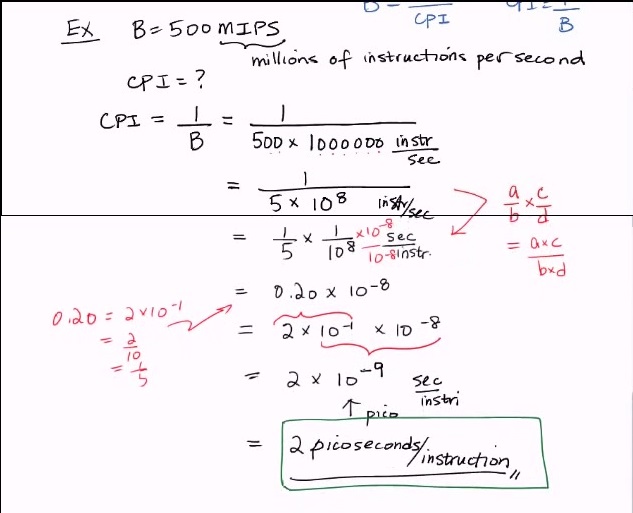 B = ― CPI   CPI = 1/B
Ex B = 500 MIPS
millions of instructions per second
CPI = ?
CPI = 1/B = 1/(500 × 1000000 instr/sec)
= 1/(5 × 10^8 instr/sec)
a/b × c/d
= 1/5 × 1/10^8 ×10^-8/10^-8 sec/instr.
= a×c/b×d
= 0.20 × 10^-8
0.20 = 2×10^-1
= 2/10
= 1/5
= 2 × 10^-1 × 10^-8
= 2 × 10^-9 sec/instri
↑ pico
= 2 picoseconds/instruction //